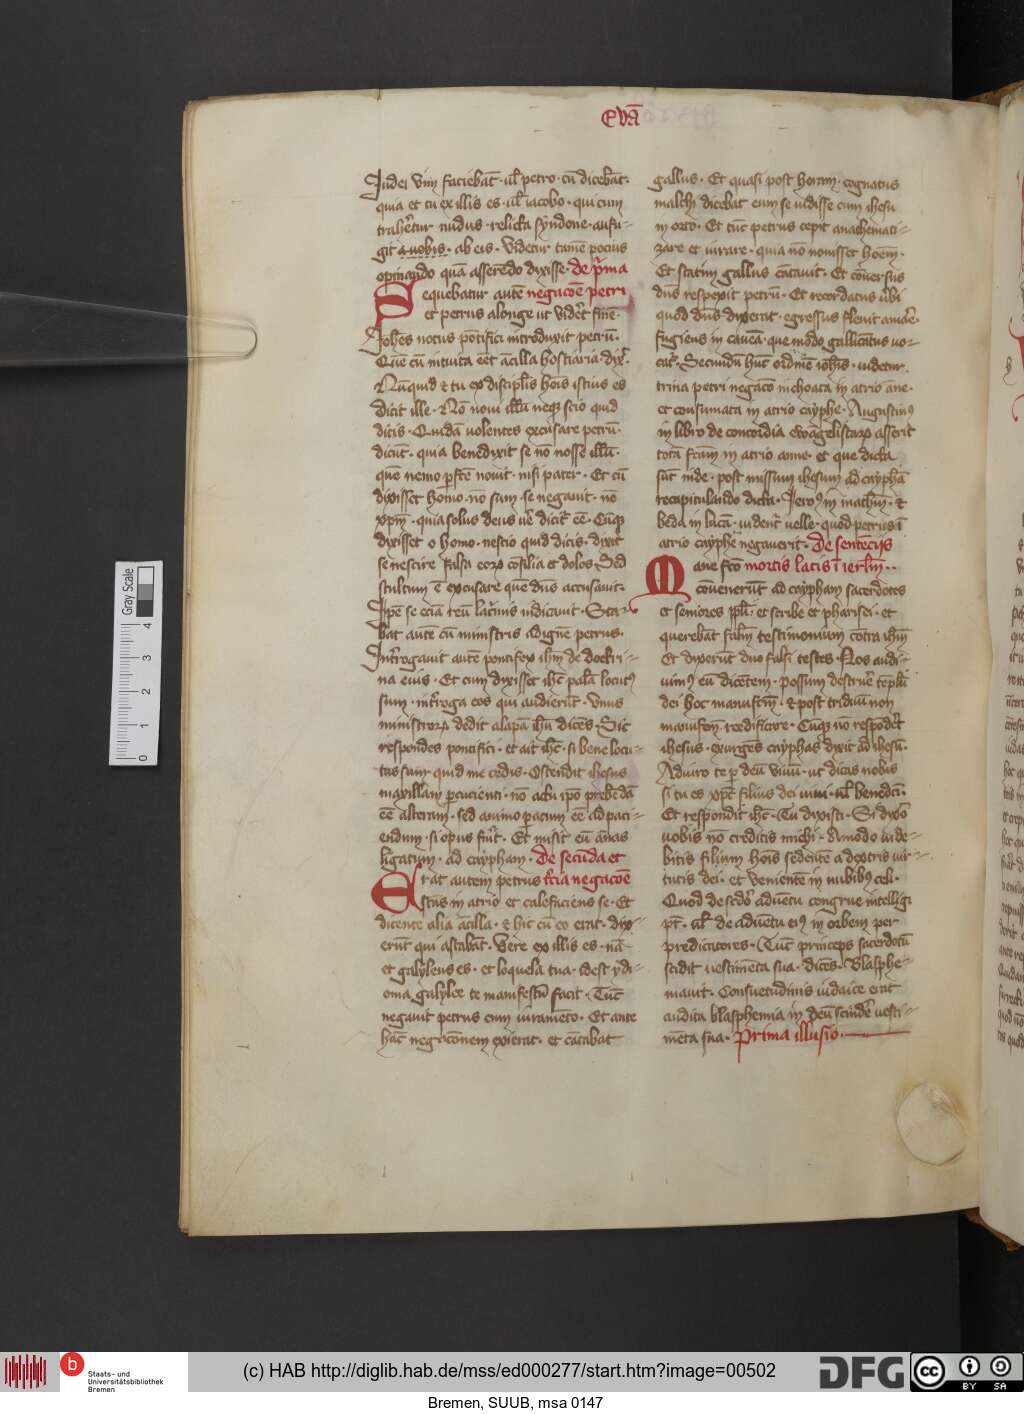 Evā
Iudei vim faciebāt · ul̄ petro · cū dicebāt ·
quia et tu ex illis es · ul̄ iacobo · qui cum
traheret̄ur nudus · relicta syndone · aufu-
git a uobis · ab eis · Videtur tamē pocius
opinando quā asserēdo dixisse · de pͥma
Sequebatur autē negacōe petri
et petrus alonge ut vidēt finē ·
Ioħes notus pōtifici introduxit petrū ·
Quē cū intuita eēt ācilla hostiaria · dix̄ ·
Nūquid et tu ex discipl̄is hoīs istius es
Dicit ille · Nō noui illū neqꝫ scio quid
dicis · Quidā volentes excusare petrū ·
dicūt · quia benedixit se nō nosse illū ·
quē nemo pfc̄e nouit · nisi pater · Et cū
dixisset homo · nō sum · se negauit · nō
xp̄m · quia solus deus ue᷑ dicit᷑ eē · Cūqꝫ
dixisset o homo · nescio quid dicis · dixit
se nescire falsa eoꝝ cōsilia et dolos · Sed
stultum ē excusare quē dn̄s accusauit ·
Ip̄e se eciā reū lac̄rimis indicauit · Sta-
bat autē cū ministris ad ignē petrus ·
Int̄rogauit autē pontifex ih̄m de doctri-
na eius · Et cum dixisset ih̄c palā locutꝰ
sum · int̄roga eos qui audierūt · Vnus
ministroꝝ dedit alapā ih̄u dicēs · Sic
respondes pontifici · et ait ih̄c · si bene locu-
tus sum · quid me cedis · Ostendit ihesus
maxillam ꝑcucienti · nō actu ip̄o prebēdā
eē alteram · sed animo ꝑatum eē ad paci-
endum · si opus fuīt · Et misit eū annas
ligatum · ad caypham · De secūda et
Erat autem petrus tͥcia negacōe
foris in atrio et calefaciens se · Et
dicente alia ācilla · et hic cū eo erat · dix-
erūt qui astabāt · Vere ex illis es · nā
et galyleus es · et loquela tua · idest ydi-
oma galylee te manifestū facit · Tūc
negauit petrus cum iuramēto · Et ante
hāc negacōnem exierat · et cātabat
gallus · Et quasi post horam · cognatus
malchi dicebat eum se uidisse cum ihesu
in orto · Et tūc petrus cepit anathemati-
zare et iurare · quia nō nouisset hoēm ·
Et statim gallus cātauit · Et cōuersus
dn̄s respexit petrū · Et recordatus u᷑bi
quod dn̄s dixerat · egressus fleuit amare ·
fugiens in cauea · que modo gallicātus uo-
cat᷑ · Secundū hūc ordinē ioh̄is · uidetur
trina petri negacō inchoata in atrio āne ·
et consumata in atrio cayphe · Augustinꝰ
in libro de concordia ewāgelistaꝝ asserit
totā fcām in atrio anne · et que dicta
sūt inde · post missum ihesum ad caypha
recapitulando dicta · Ieroꝰ in math̄m · et
beda in lucā · uidēnt᷑ uelle · quod petrus ī
atrio cayphe negauerit · De sentēciis
Mane fc̄o mortis latis ī ierl̄m ··
cōuenerūt ad caypham sacerdotes
et seniores ppl̄i · et scribe et pharisei · et
querebāt falsū testimonium cōtra ih̄m
Et dixerūt duo falsi testes · Nos audi-
uimꝰ eū dicētem · Possum destrue᷑ tēplū
dei hoc manufc̄m · et post triduū non
manufc̄m · reedificare · Cūqꝫ nō respōdēt
ihesus · exurgēs cayphas dixit ad ihesū ·
Adiuro te ꝑ deū viuū · ut dicas nobis
si tu es xp̄c filius dei uiui · ul̄ benedc̄i ·
Et respondit ih̄c · Tu dixisti · Si dixo᷑
uobis nō creditis michi · Amodo uide-
bitis filium hoīs sedentē a dextris uir-
tutis dei · et venientē in nubibꝰ celi ·
Quod de scd̄o aduētu congrue intelligi
pt̄ · ul̄ de aduētu eiꝰ in orbem per
predicatores · Tūc princeps sacerdotū
scidit uestimēta sua · dicēs · Blasphe-
mauit · Consuetudinis iudaice erat
audita blasphemia in deū scinde᷑ uesti-
mēta sua · Prima illusio ·
Gray Scale
0 1 2 3 4
b
Staats- und
Universitätsbibliothek
Bremen
(c) HAB http://diglib.hab.de/mss/ed000277/start.htm?image=00502
DFG
cc BY SA
Bremen, SUUB, msa 0147